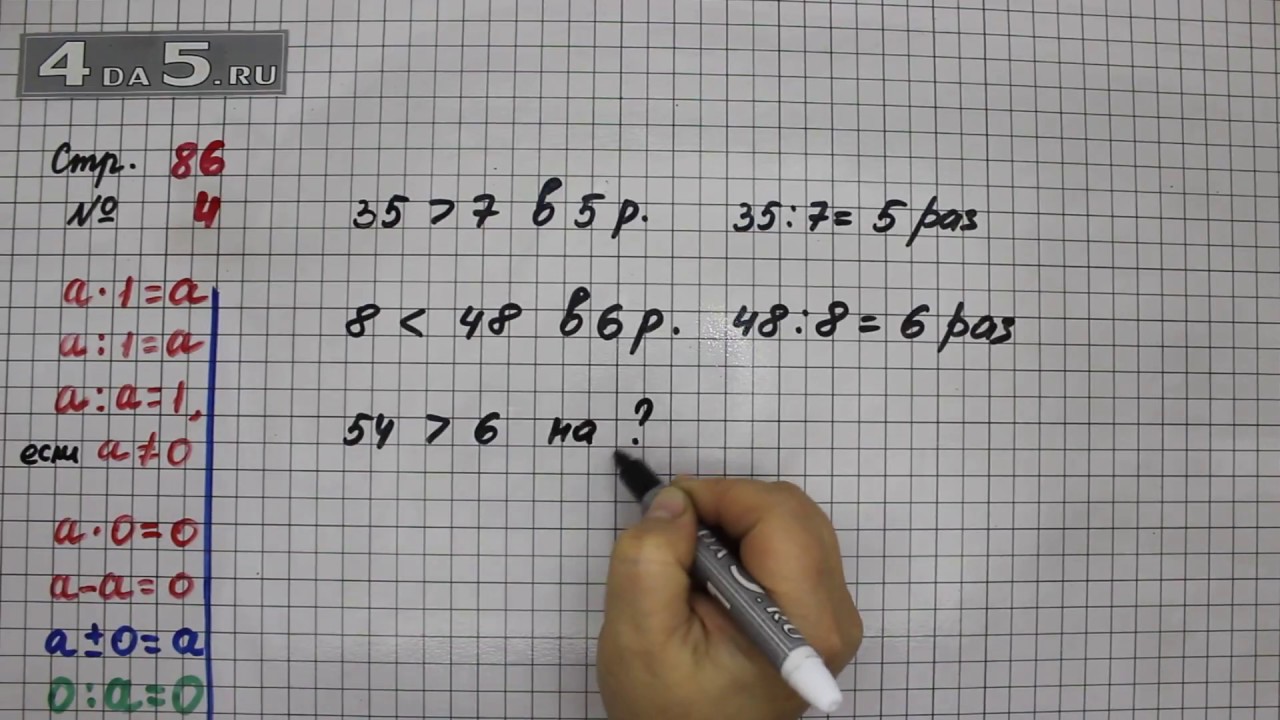 4 DA 5.RU
Стр. 86
№ 4
35 > 7 в 5 р. 35:7= 5 раз
8 < 48 в 6 р. 48:8 = 6 раз
54 > 6 на ?
a·1=a
a:1=a
a:a=1,
если a≠0
a·0=0
a-a=0
a±0=a
0:a=0